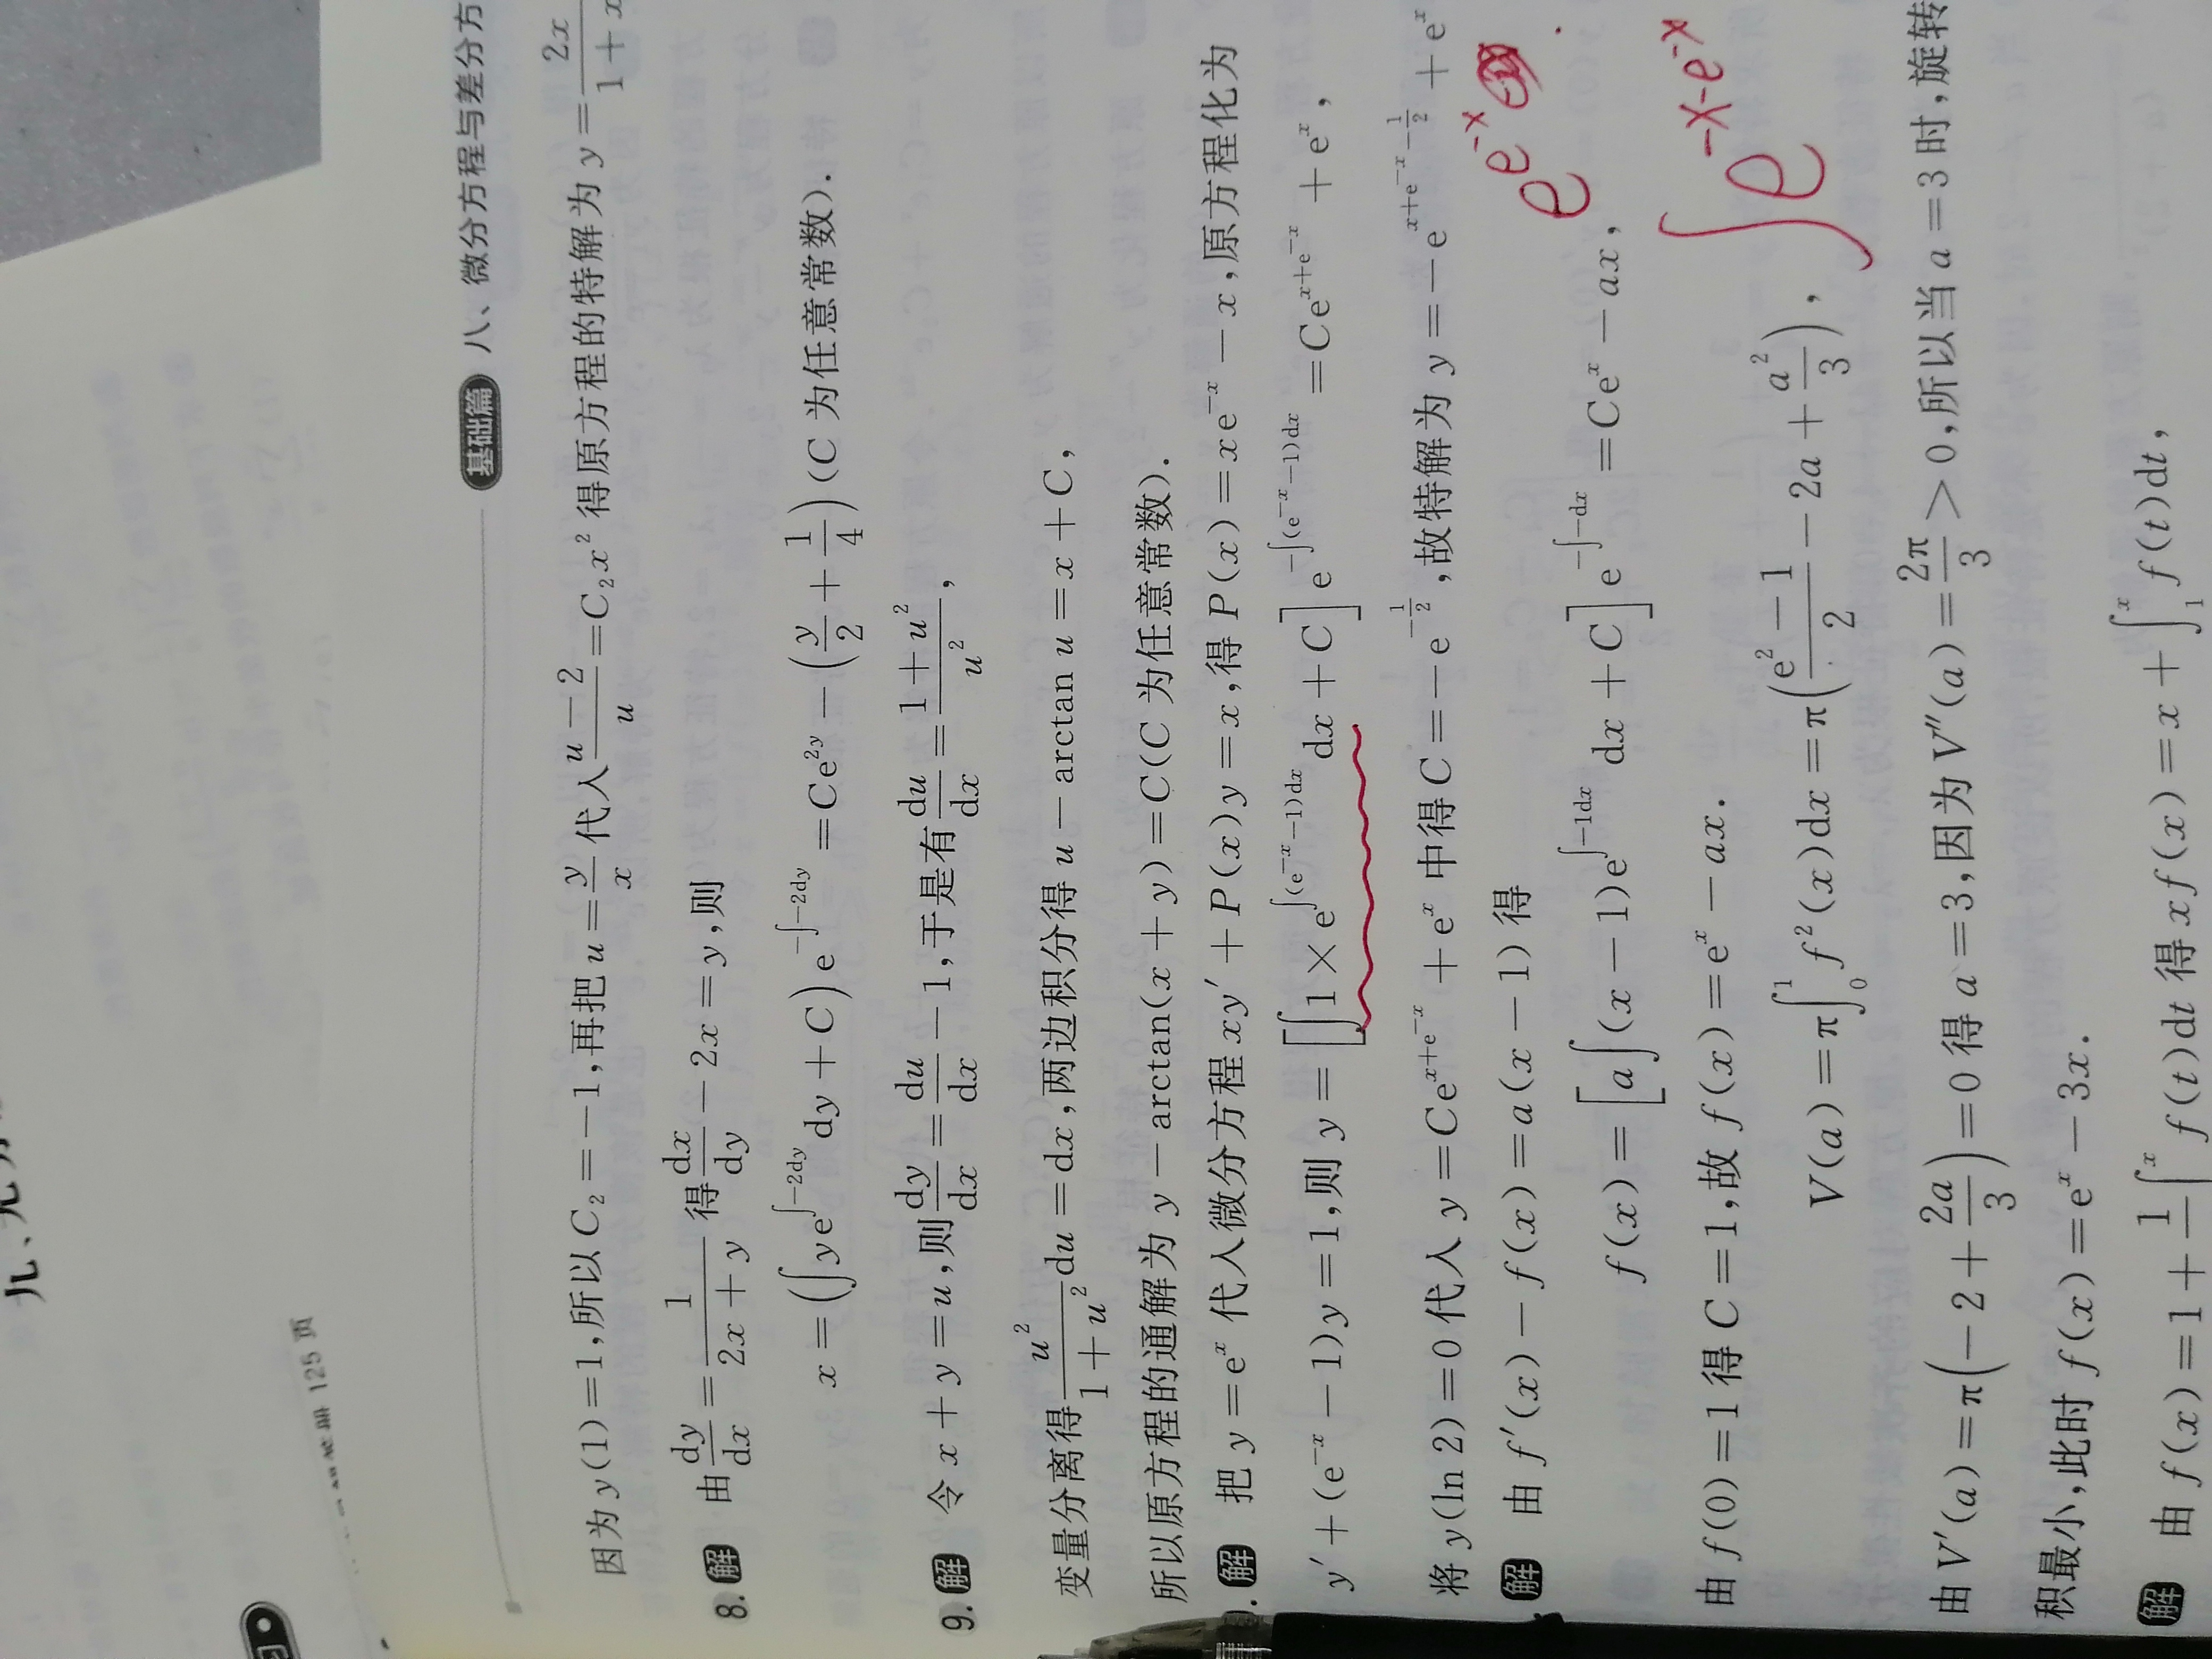 九、
125 页
基础篇 八、微分方程与差分方
因为 y(1)=1,所以 C₂=−1,再把 u=y/x 代入 (u−2)/u=C₂x² 得原方程的特解为 y=2x/(1+x
8. 解 由 dy/dx=1/(2x+y) 得 dx/dy−2x=y,则
x=(∫ye^{∫−2dy}dy+C)e^{−∫−2dy}=Ce^{2y}−(y/2+1/4)(C 为任意常数).
9. 解 令 x+y=u,则 dy/dx=du/dx−1,于是有 du/dx=(1+u²)/u²,
变量分离得 u²/(1+u²)du=dx,两边积分得 u−arctan u=x+C,
所以原方程的通解为 y−arctan(x+y)=C(C 为任意常数).
). 解 把 y=eˣ 代入微分方程 xy′+P(x)y=x,得 P(x)=xe^{−x}−x,原方程化为
y′+(e^{−x}−1)y=1,则 y=[∫1×e^{∫(e^{−x}−1)dx}dx+C]e^{−∫(e^{−x}−1)dx}=Ce^{x+e^{−x}}+eˣ,
将 y(ln 2)=0 代入 y=Ce^{x+e^{−x}}+eˣ 中得 C=−e^{−1/2},故特解为 y=−e^{x+e^{−x}−1/2}+eˣ
e^{e^{−x}}
解 由 f′(x)−f(x)=a(x−1) 得
f(x)=[a∫(x−1)e^{∫−1dx}dx+C]e^{−∫−dx}=Ceˣ−ax,
∫e^{−x−e^{−x}}
由 f(0)=1 得 C=1,故 f(x)=eˣ−ax.
V(a)=π∫₀¹f²(x)dx=π((e²−1)/2−2a+a²/3),
由 V′(a)=π(−2+2a/3)=0 得 a=3,因为 V″(a)=2π/3>0,所以当 a=3 时,旋转
积最小,此时 f(x)=eˣ−3x.
解 由 f(x)=1+1/ ∫ˣ f(t)dt 得 xf(x)=x+∫₁ˣf(t)dt,